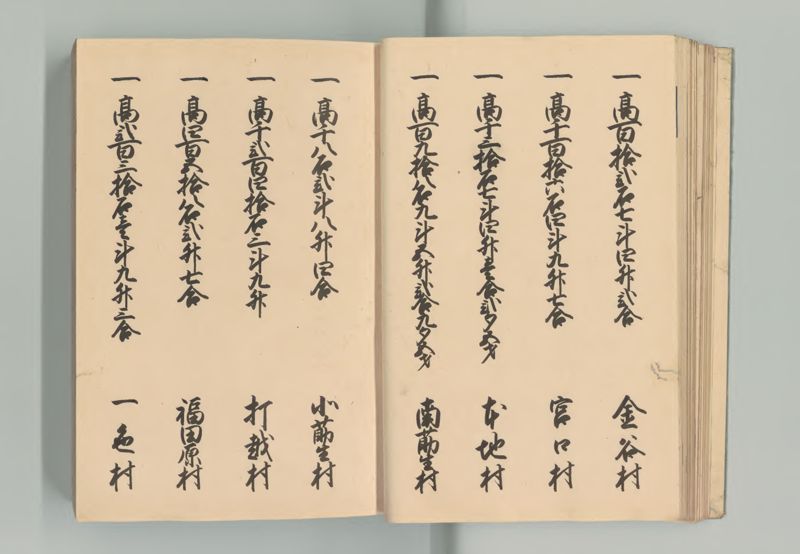 一 高百拾弐石七斗四升弐合 金谷村
一 高千百拾六石四斗九升七合 宮口村
一 高千三拾石七斗四升壱合弐夕五才 本地村
一 高百九拾八石九斗五升弐合九夕五才 南莇生村
一 高千八石弐斗八升四合 小莇生村
一 高千弐百四拾石三斗九升 打越村
一 高四百五拾八石弐升七合 福田原村
一 高弐百三拾石壱斗九升三合 一色村